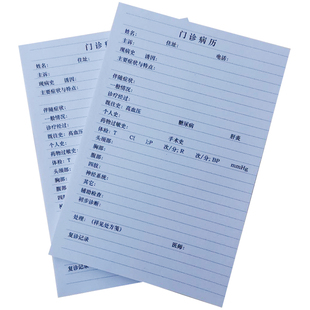 门诊病历
姓名: 住址: 电话:
主诉:
现病史 诱因:
主要症状与特点:
伴随症状:
一般情况:
诊疗经过:
既往史: 高血压 糖尿病 肝炎
个人史:
药物过敏史: 手术史
体检: T C! 次/分; R 次/分; BP mmHg
头颈部:
胸部:
腹部:
四肢:
神经系统:
其它:
辅助检查:
初步诊断:
处理: (详见处方笺)
复诊记录 医师:
门诊病
姓名: 住址:
主诉:
现病史 诱因:
主要症状与特点:
伴随症状:
一般情况:
诊疗经过:
既往史: 高血压
个人史:
药物过敏史:
体检: T
头颈部:
胸部:
腹部:
四肢:
复诊记录